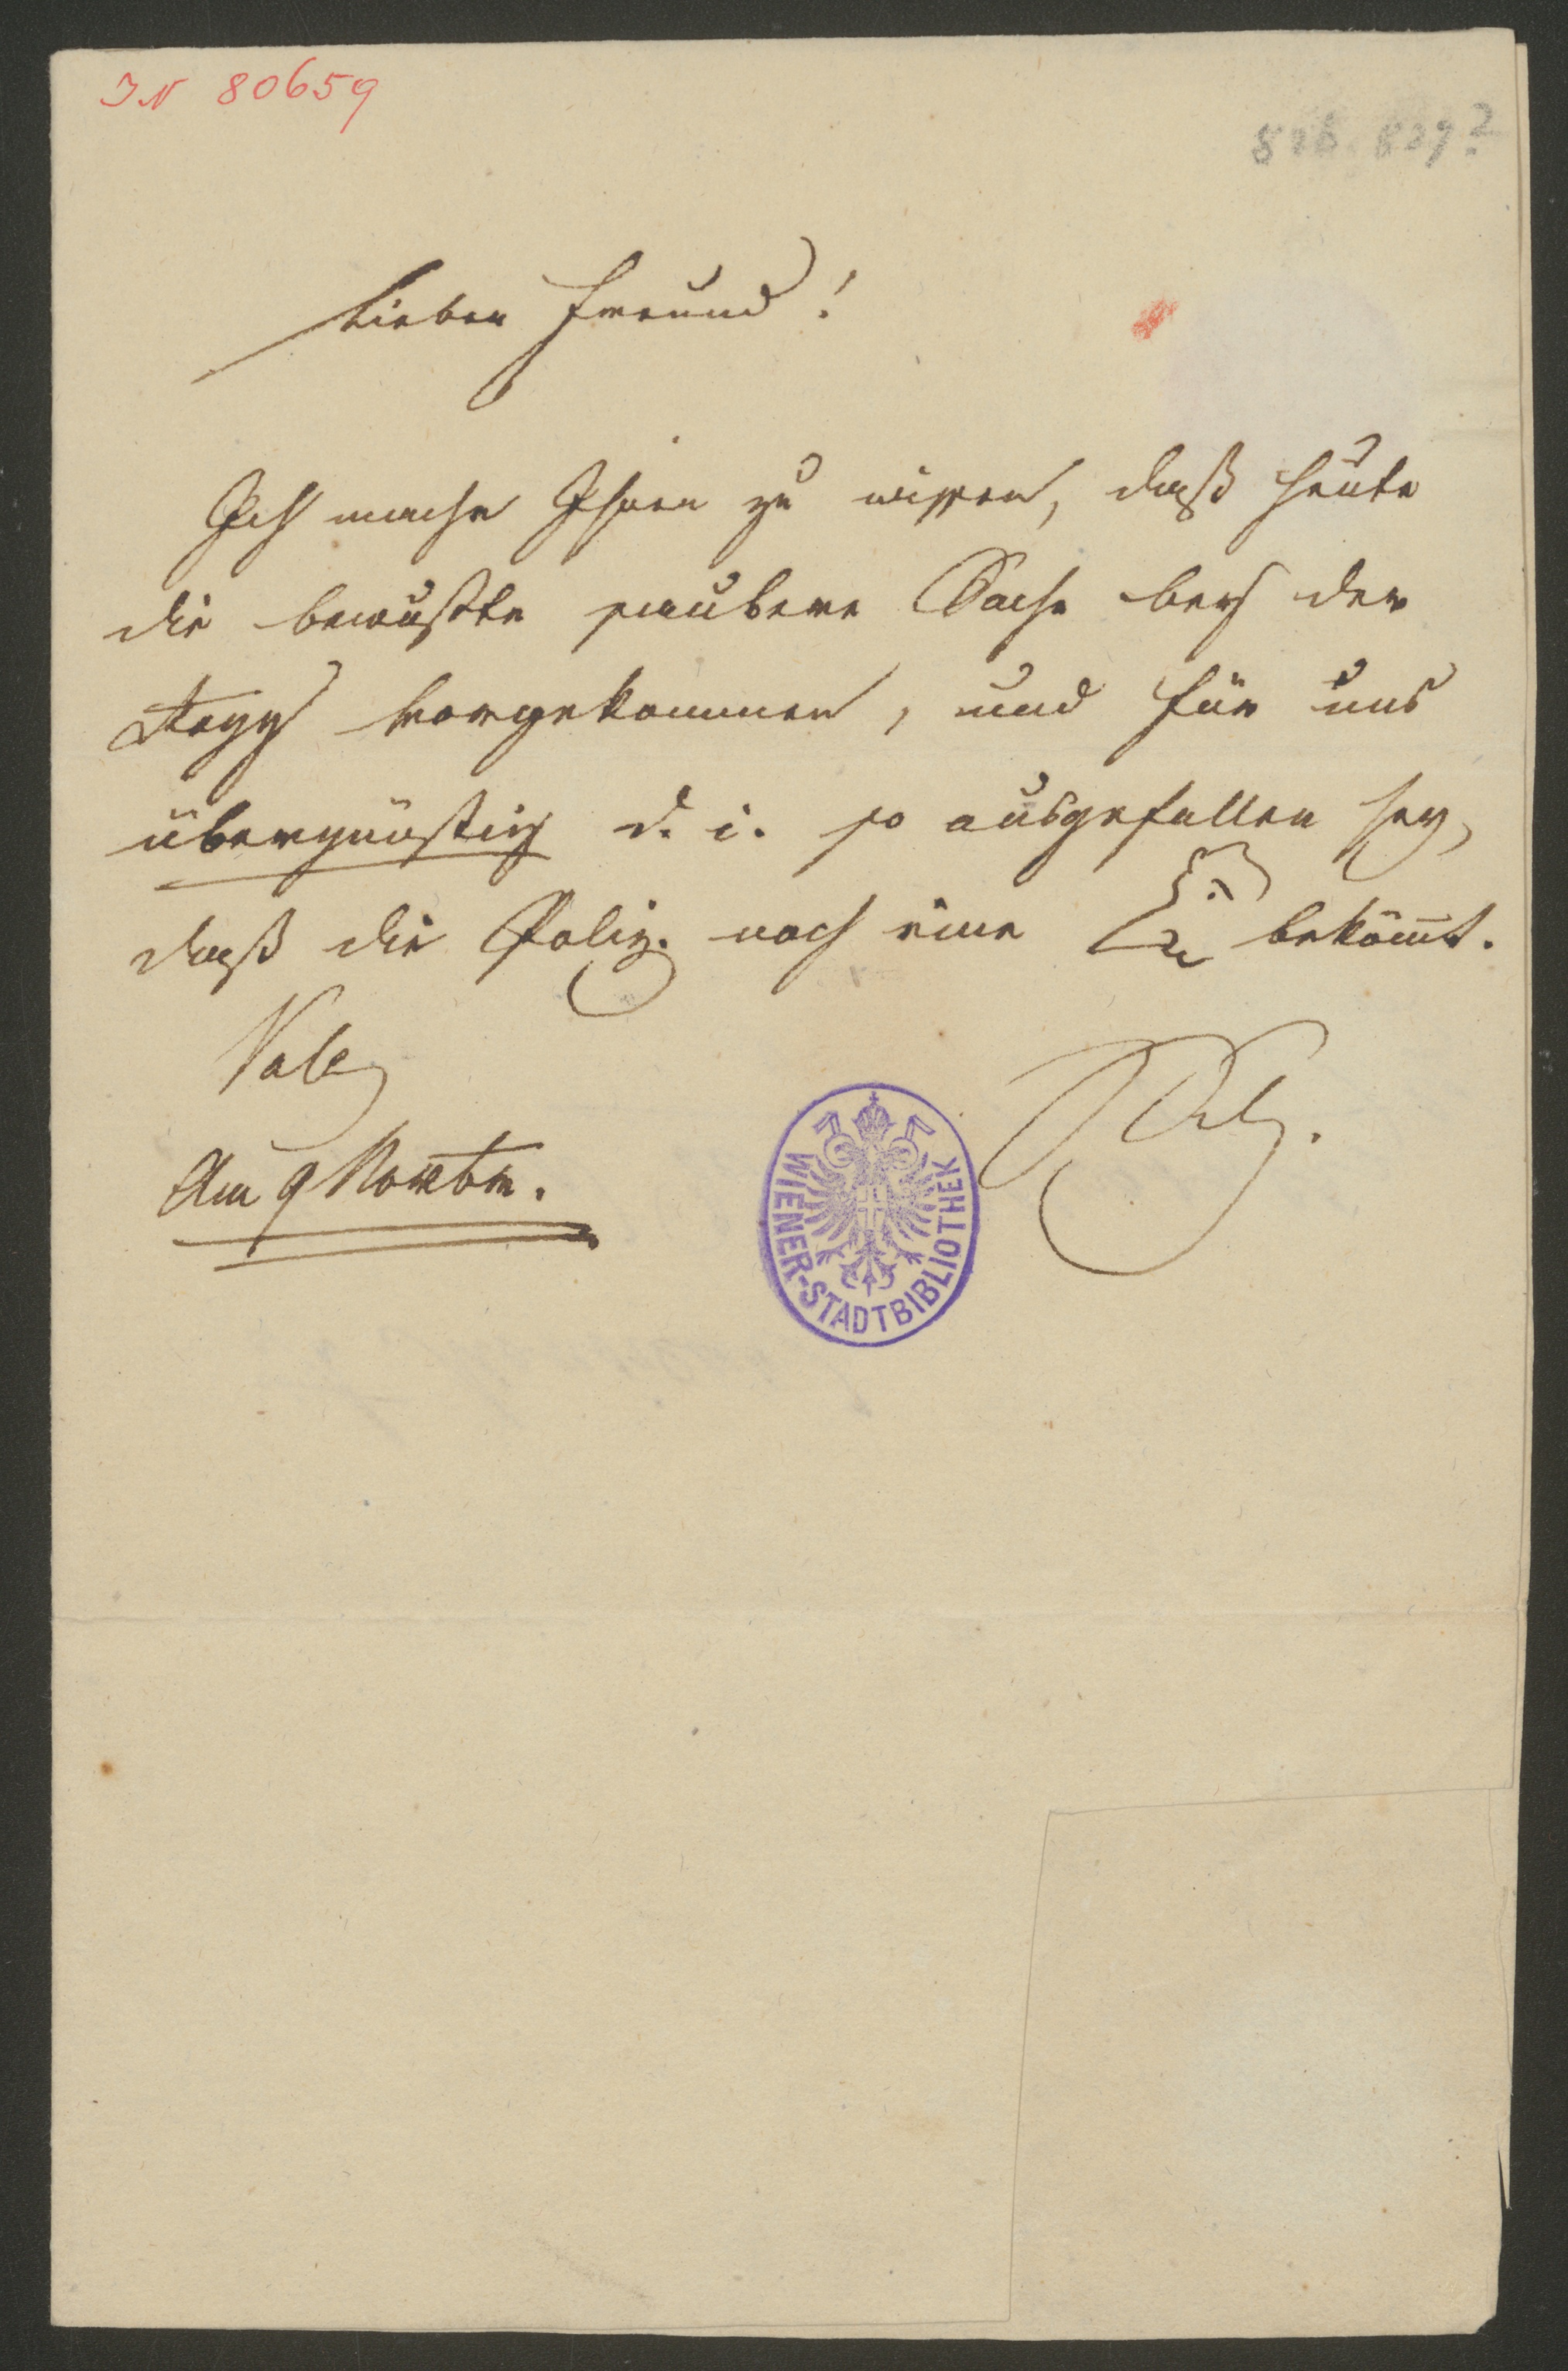 IN 80659
Lieber Freund!
Ich mache Ihnen zu wissen, daß heute
die bewußte saubere Sache bey der
Regg vorgekommen, und für uns
übergünstig d. i. so ausgefallen sey,
daß die Poliz. noch eine bekömt.
Vale
Am 9 Novebr.
WIENER-STADTBIBLIOTHEK